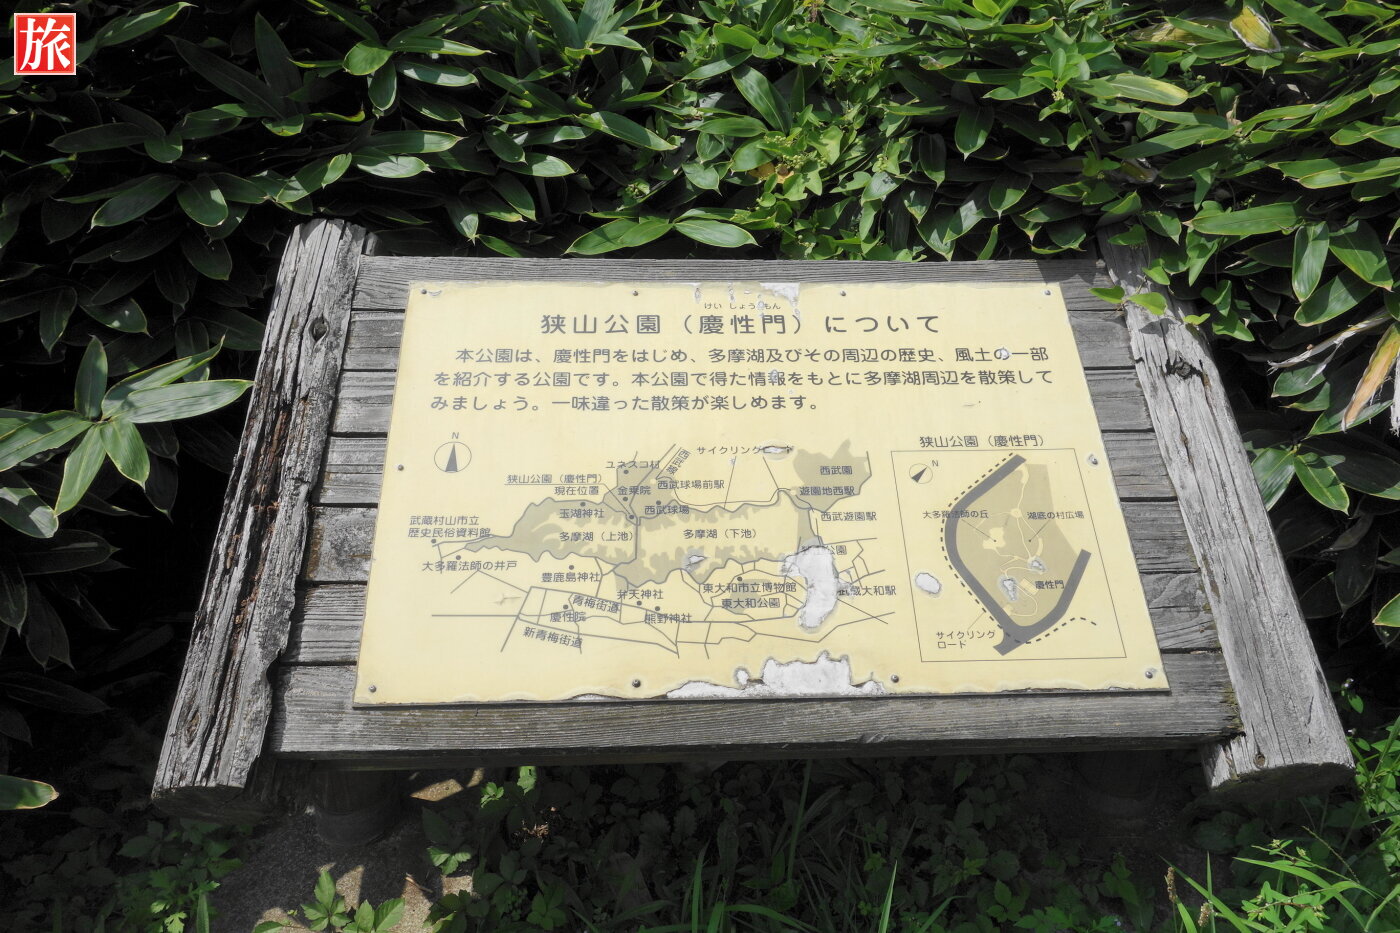 旅
けいしょうもん
狭山公園（慶性門）について
本公園は、慶性門をはじめ、多摩湖及びその周辺の歴史、風土の一部
を紹介する公園です。本公園で得た情報をもとに多摩湖周辺を散策して
みましょう。一味違った散策が楽しめます。
N
サイクリングロード
ユネスコ村
狭山公園（慶性門）
現在位置
金乗院
西武球場前駅
西武園
遊園地西駅
玉湖神社
西武球場
西武遊園駅
武蔵村山市立
歴史民俗資料館
多摩湖（上池）
多摩湖（下池）
公園
大多羅法師の井戸
豊鹿島神社
東大和市立博物館
武蔵大和駅
弁天神社
東大和公園
青梅街道
慶性院
熊野神社
新青梅街道
狭山公園（慶性門）
N
大多羅法師の丘
湖底の村広場
慶性門
サイクリング
ロード